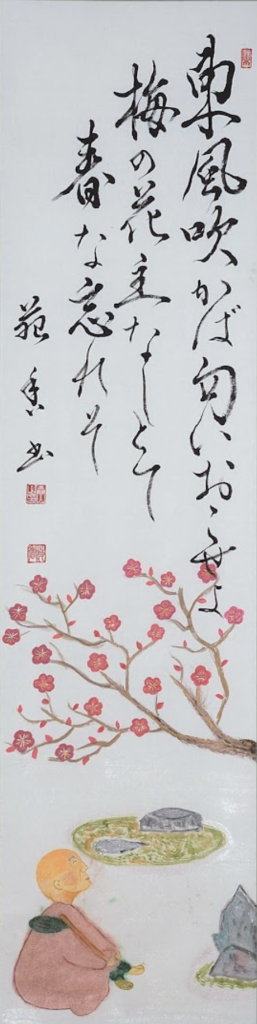 東風吹かば匂いおこせよ
梅の花主なしとて
春な忘れそ
苑香書